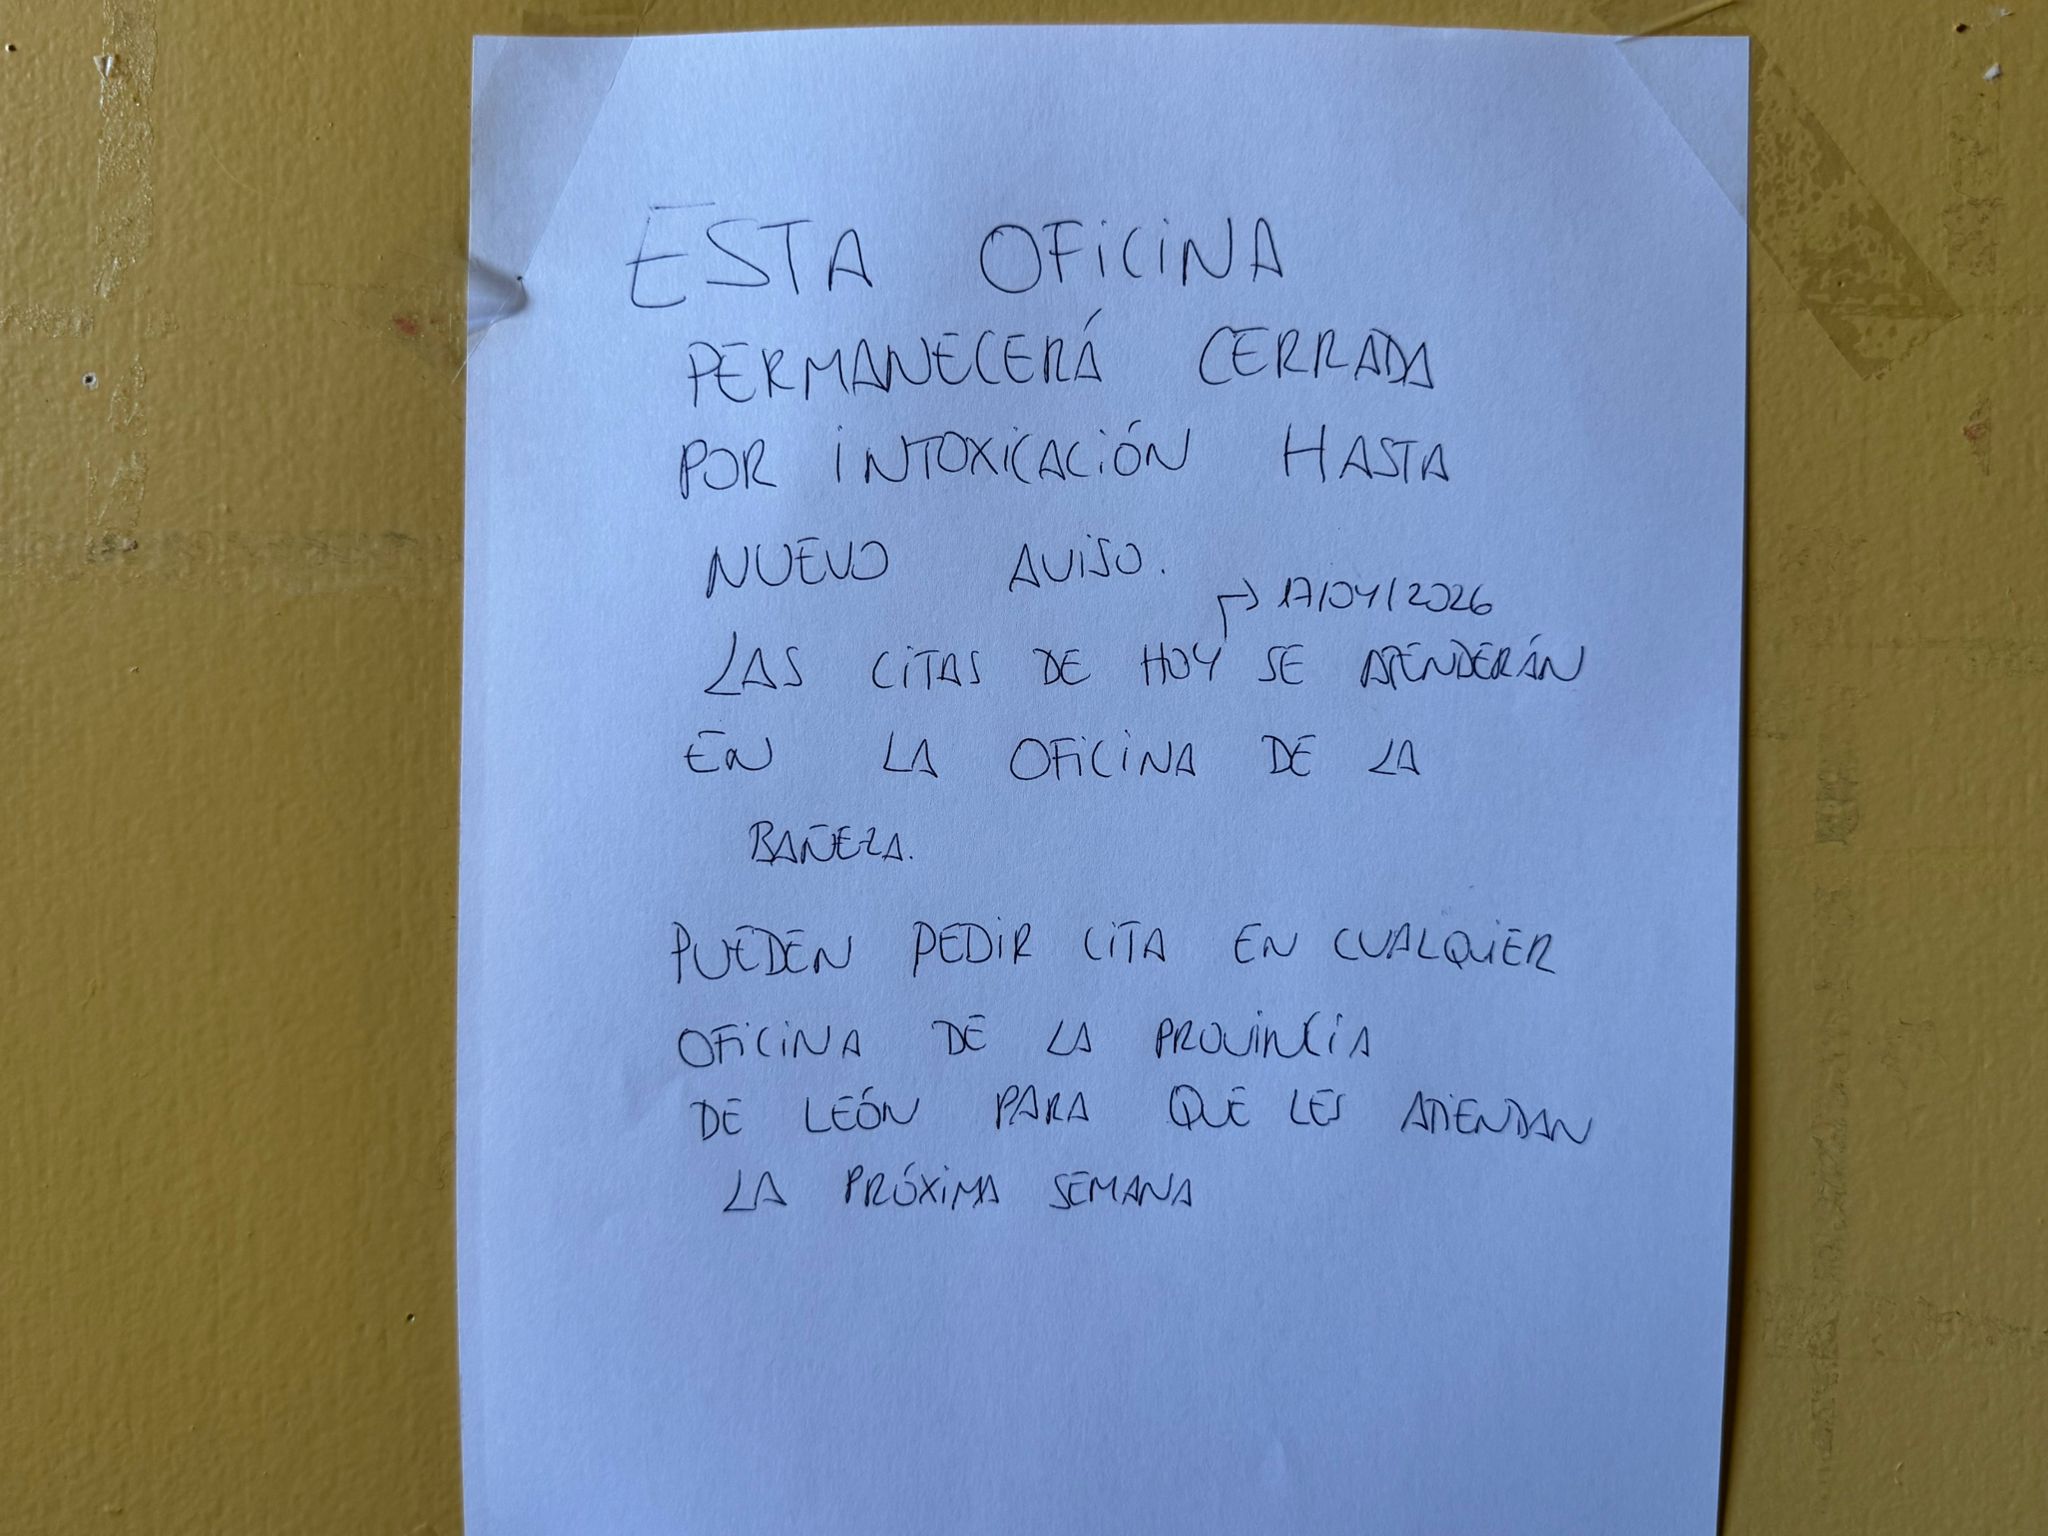 ESTA OFICINA
PERMANECERÁ CERRADA
POR INTOXICACIÓN HASTA
NUEVO AVISO.
→ 17/04/2026
LAS CITAS DE HOY SE ATENDERÁN
EN LA OFICINA DE LA
BAÑEZA.
PUEDEN PEDIR CITA EN CUALQUIER
OFICINA DE LA PROVINCIA
DE LEÓN PARA QUE LES ATIENDAN
LA PRÓXIMA SEMANA